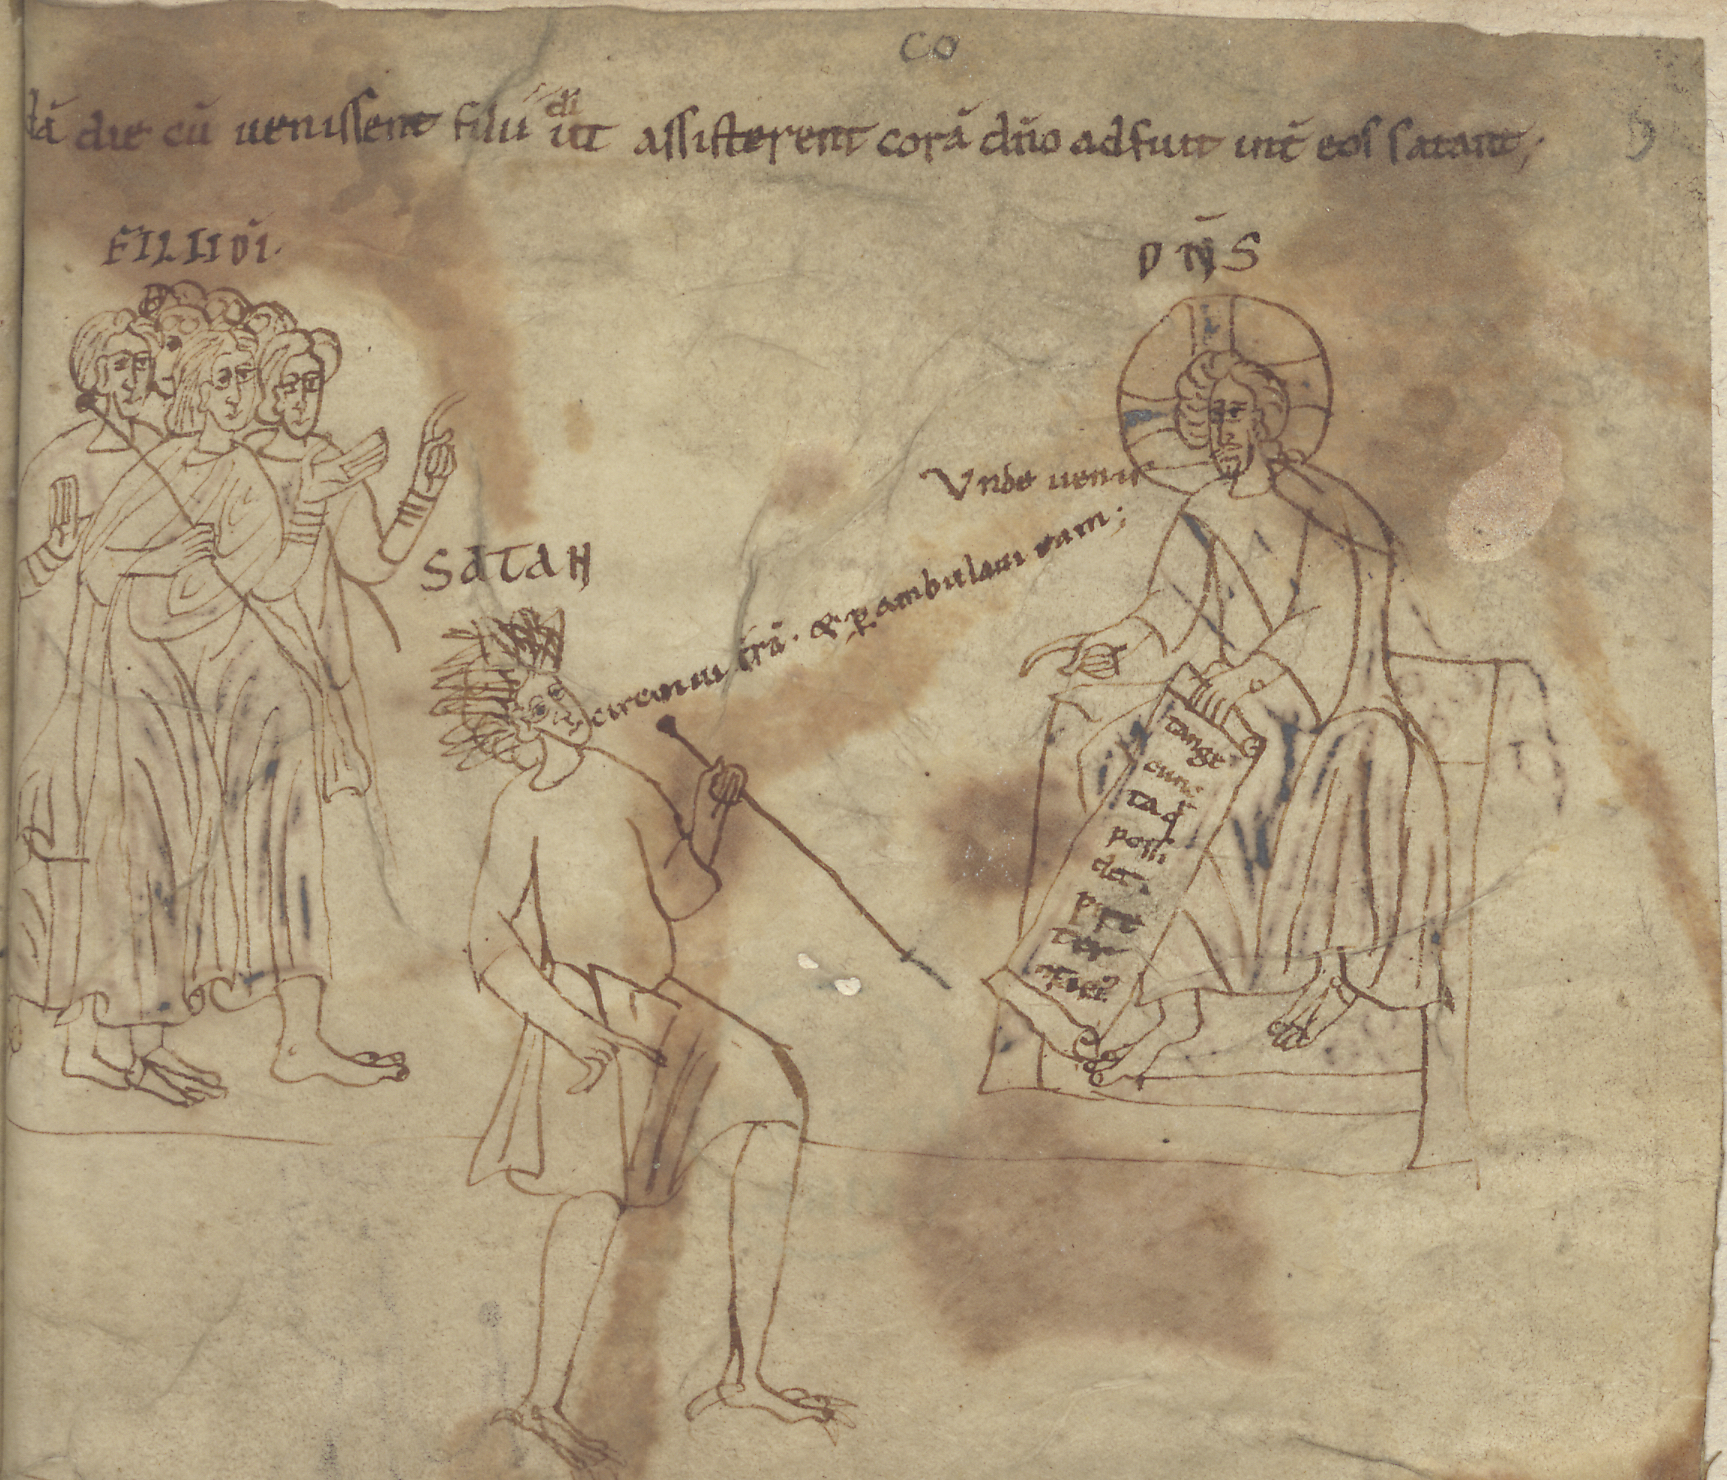 co
dā die cū uenissent filii di ut assisterent corā dn̄o adfuit int̄ eos satan;
FILII DĪ.
DN̄S
Vnde uenis
SATAN
circuiui t̄rā. & ꝑambulaui eam;
tange
cunc
ta q̄
possi
det